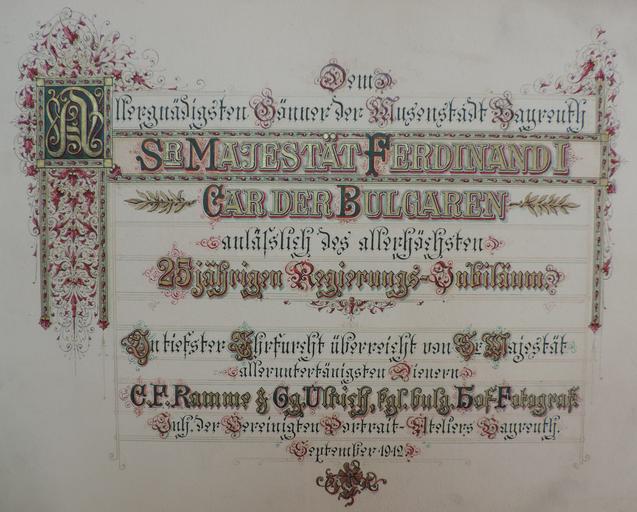 Dem
Allergnädigsten Gönner der Musenstadt Bayreuth
SR MAJESTÄT FERDINAND I
CAR DER BULGAREN
anlässlich des allerhöchsten
25jährigen Regierungs-Jubiläum.
In tiefster Ehrfurcht überreicht von Sr Majestät
alleruntertänigsten Dienern
C.F. Ramme & Gg. Ulrich, kgl. bulg. Hof-Fotograf
Inh. der Vereinigten Portrait-Ateliers Bayreuth.
September 1912.